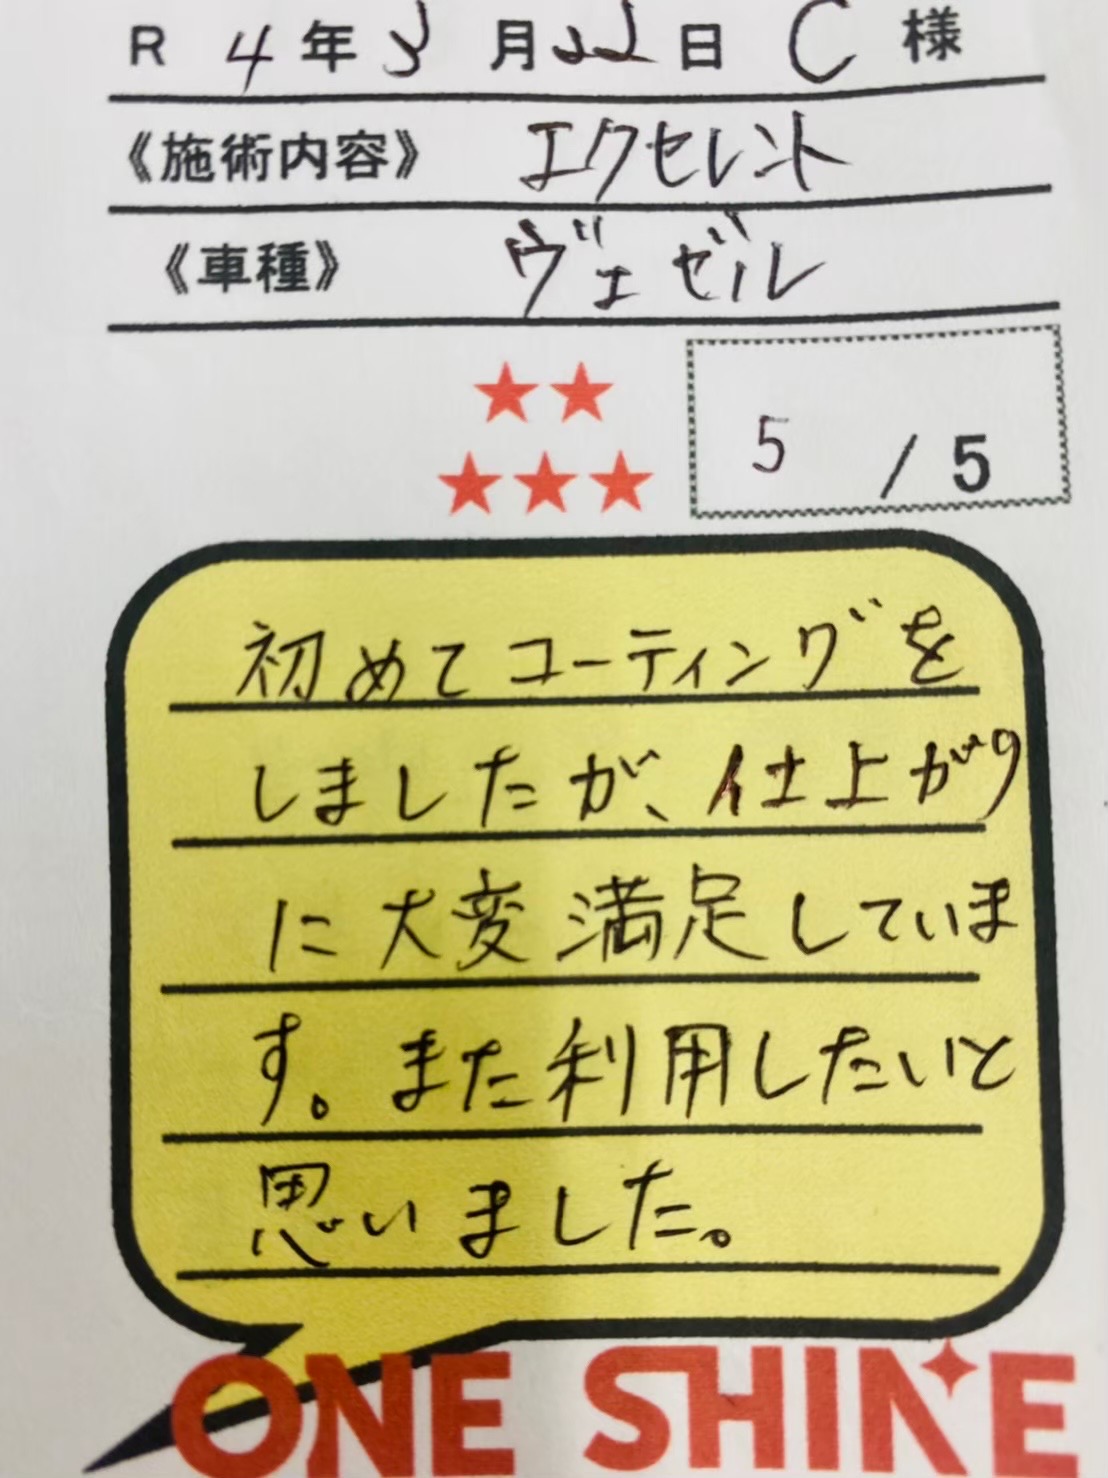 R 4年3月22日 C様
《施術内容》 エクセレント
《車種》 ヴェゼル
5 / 5
初めてコーティングを
しましたが、仕上がり
に大変満足していま
す。また利用したいと
思いました。
ONE SHINE